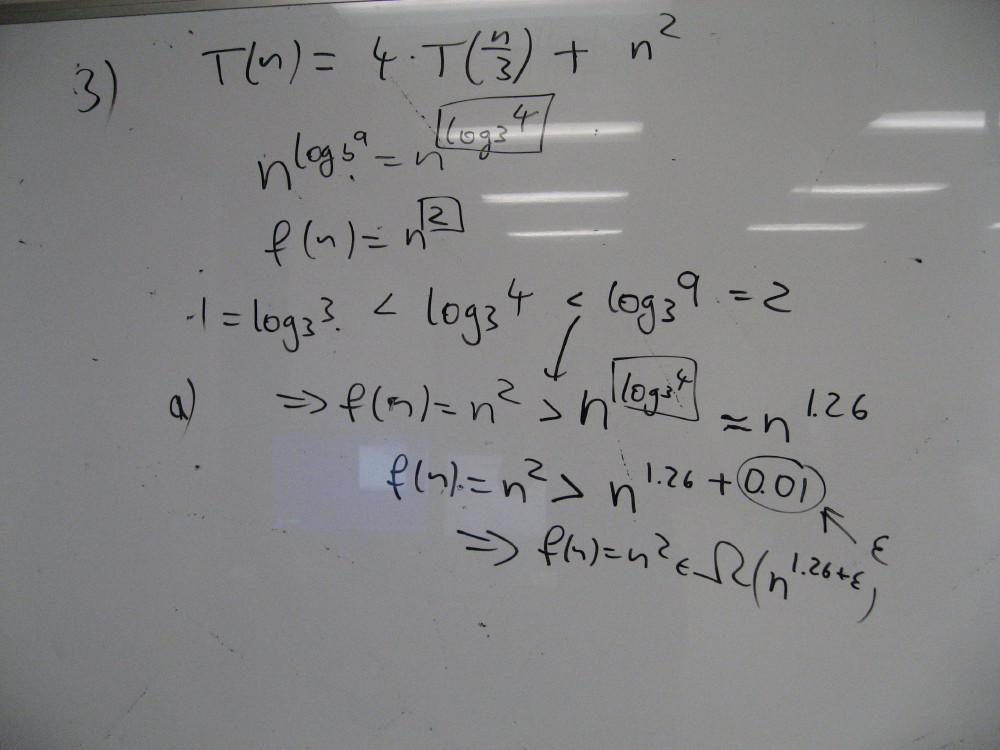 3) T(n) = 4 · T(n/3) + n²
n^(log_b a) = n^(log₃4)
f(n) = n²
1 = log₃3 < log₃4 < log₃9 = 2
a) ⇒ f(n) = n² > n^(log₃4) ≈ n^1.26
f(n) = n² > n^(1.26 + 0.01)
⇒ f(n) = n² ∈ Ω(n^(1.26+ε))
ε